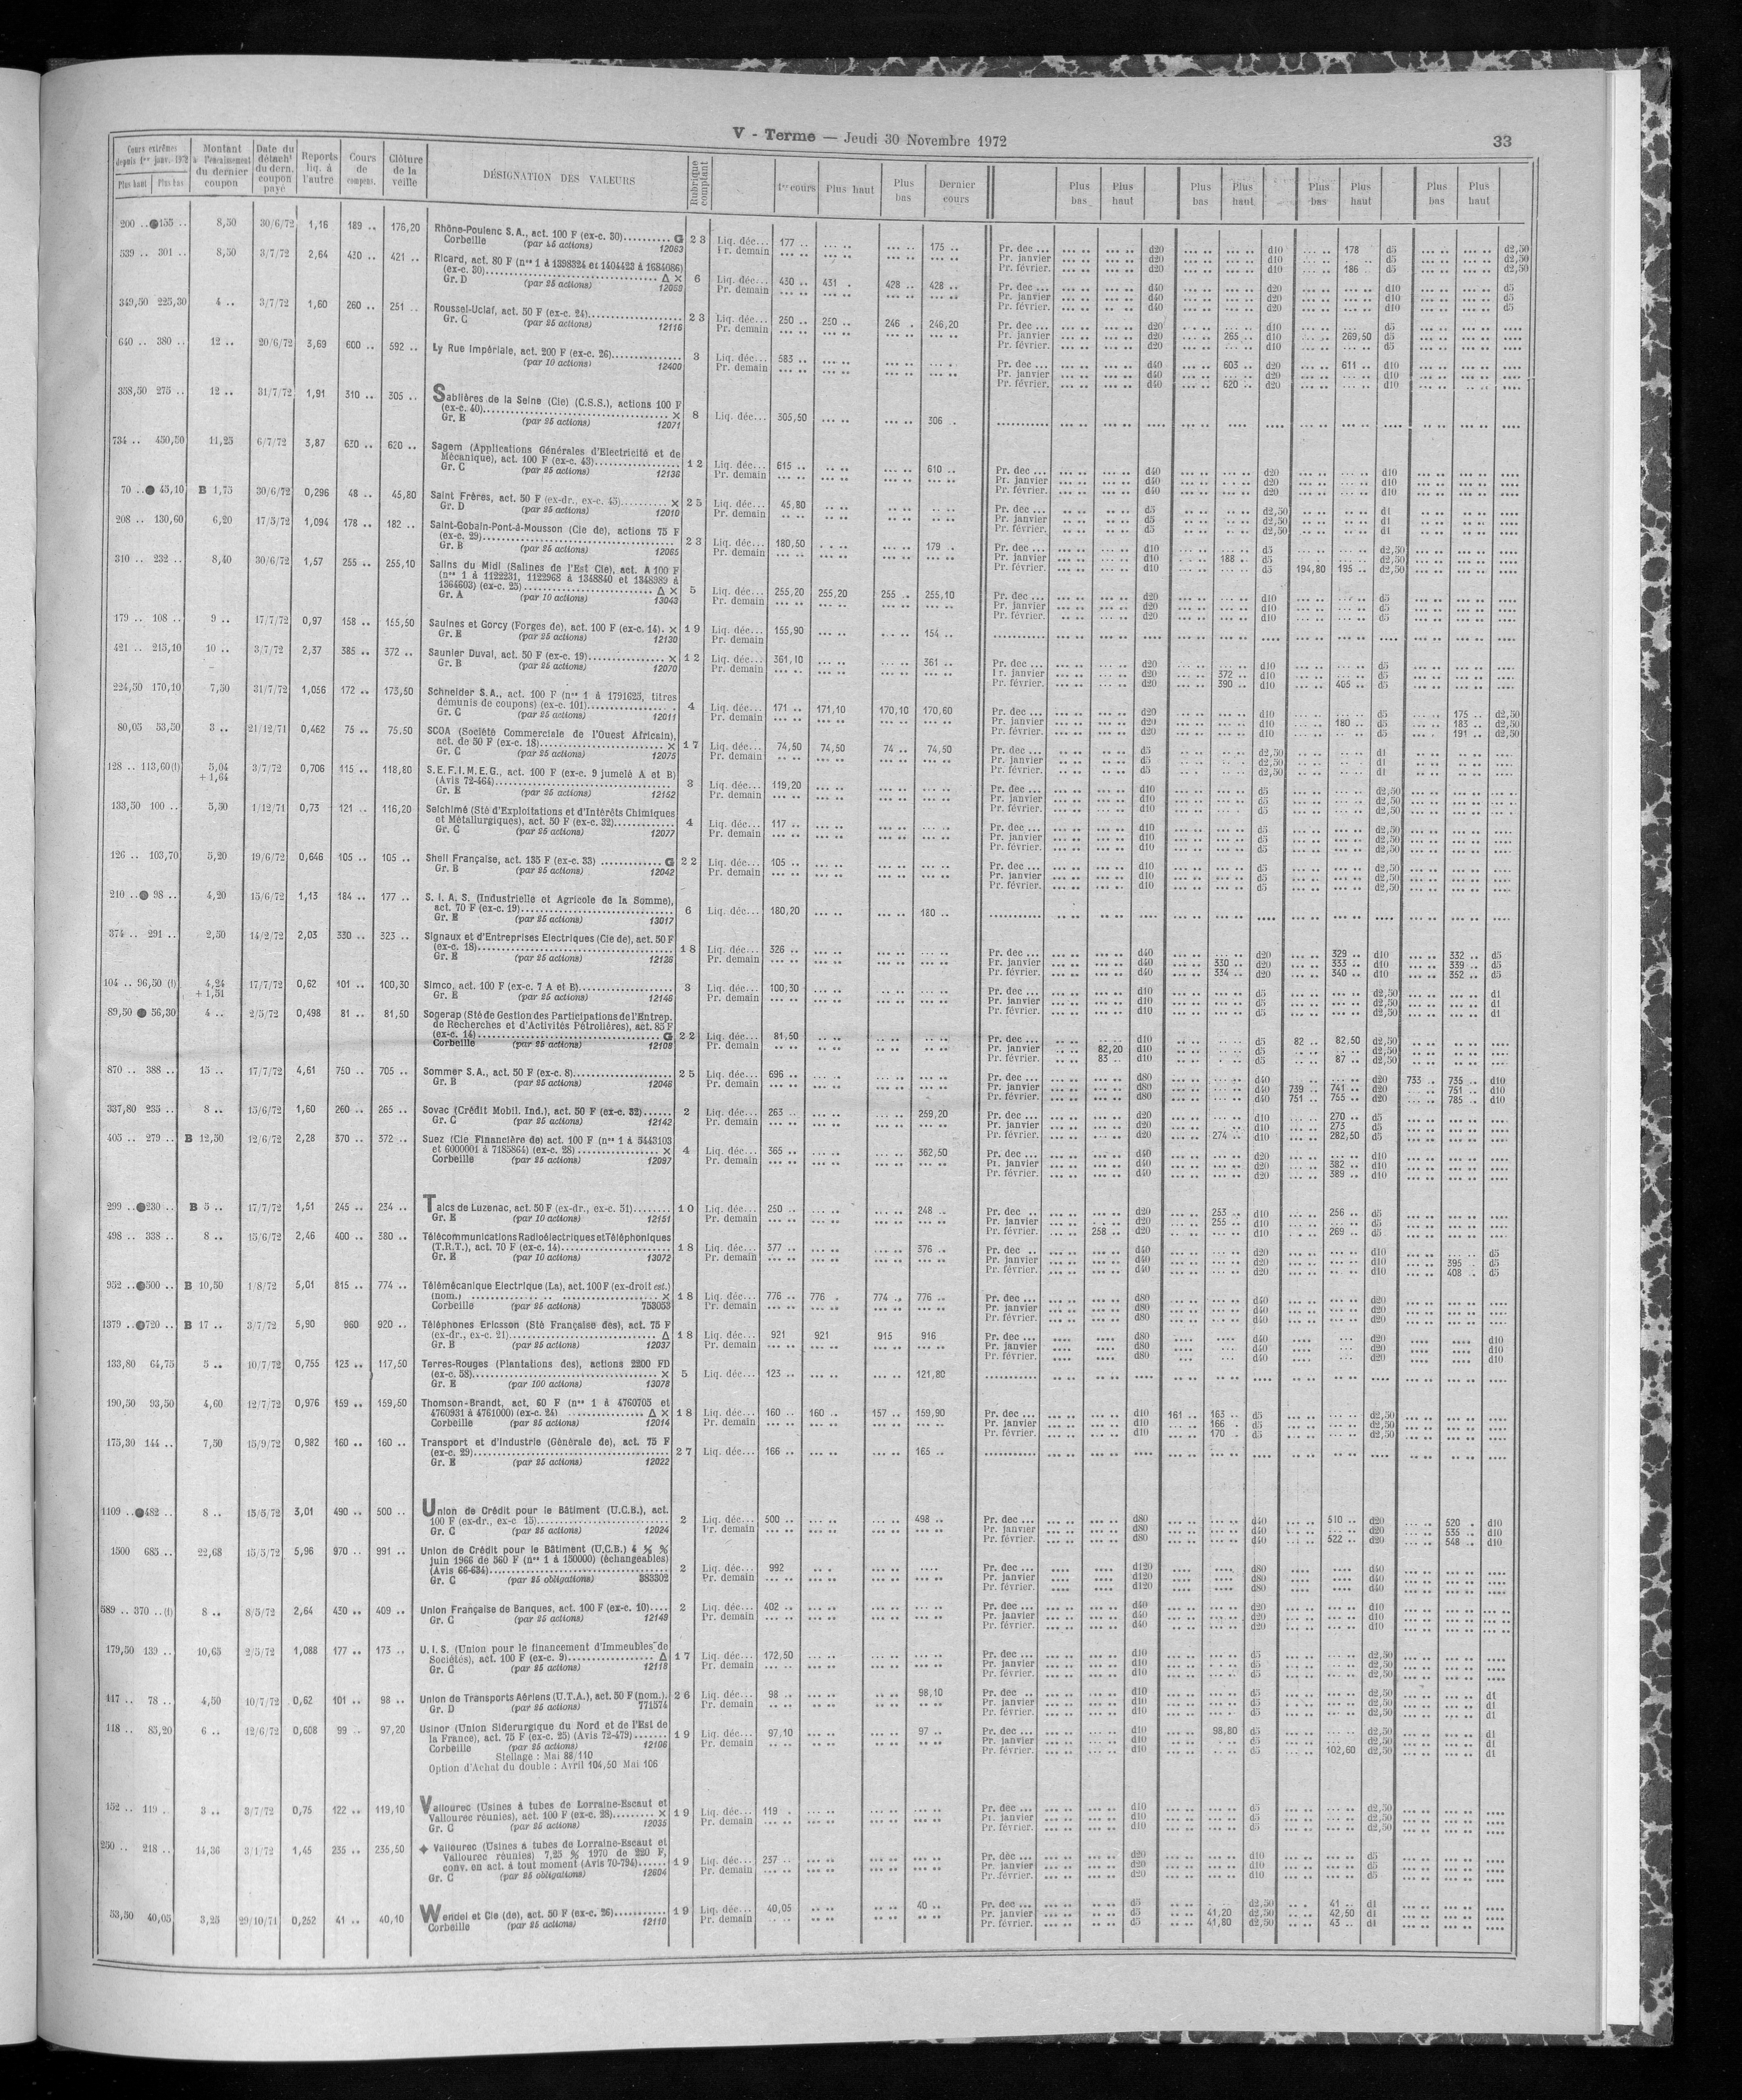 V - Terme — Jeudi 30 Novembre 1972
33
Cours extrêmes depuis 1er janv. 1972 Plus haut Plus bas
Montant à l'encaissement du dernier coupon
Date du détacht du dern. coupon payé
Reports liq. à l'autre
Cours de compens.
Clôture de la veille
DÉSIGNATION DES VALEURS
Rubrique comptant
1er cours Plus haut Plus bas Dernier cours
Plus bas Plus haut Plus bas Plus haut Plus bas Plus haut Plus bas Plus haut
200 .. ●155 .. 8,50 30/6/72 1,16 189 .. 176,20 Rhône-Poulenc S.A., act. 100 F (ex-c. 30).......... G 23 Liq. déc... 177 .. 175 .. Pr. dec ... d20 d10 178 d5 d2,50
Corbeille 12063 Pr. demain Pr. janvier d20 d10 d5 d2,50
Pr. février. d20 d10 186 .. d5 d2,50
539 .. 301 .. 8,50 3/7/72 2,64 430 .. 421 .. Ricard, act. 80 F (nos 1 à 1398324 et 1404423 à 1684086)
(ex-c. 30) Δ × 6 Liq. déc... 430 .. 431 . 428 .. 428 .. Pr. dec ... d40 d20 d10 d5
Gr. D (par 25 actions) Pr. demain Pr. janvier d40 d20 d10 d5
Pr. février. d40 d20 d10 d5
349,50 225,30 4 .. 3/7/72 1,60 260 .. 251 .. Roussel-Uclaf, act. 50 F (ex-c. 24) 23 Liq. déc... 250 .. 250 .. 246 . 246,20 Pr. dec ... d20 d10 d5
Gr. C (par 25 actions) 12116 Pr. demain Pr. janvier d20 265 .. d10 269,50 d5
Pr. février. d20 d10 d5
640 .. 380 .. 12 .. 20/6/72 3,69 600 .. 592 .. Ly Rue Impériale, act. 200 F (ex-c. 26) 3 Liq. déc... 583 .. Pr. dec ... d40 603 .. d20 611 .. d10
(par 10 actions) 12400 Pr. demain Pr. janvier d40 d20 d10
Pr. février. d40 620 .. d20 d10
358,50 275 .. 12 .. 31/7/72 1,91 310 .. 305 .. Sablières de la Seine (Cie) (C.S.S.), actions 100 F
(ex-c. 40) × 8 Liq. déc... 305,50 306 ..
Gr. E (par 25 actions) 12071
734 .. 450,50 11,25 6/7/72 3,87 630 .. 620 .. Sagem (Applications Générales d'Electricité et de
Mécanique), act. 100 F (ex-c. 43) 12 Liq. déc... 615 .. 610 .. Pr. dec ... d40 d20 d10
Gr. C (par 25 actions) 12136 Pr. demain Pr. janvier d40 d20 d10
Pr. février. d40 d20 d10
70 .. ● 45,10 B 1,75 30/6/72 0,296 48 .. 45,80 Saint Frères, act. 50 F (ex-dr., ex-c. 45) × 25 Liq. déc... 45,80 Pr. dec ... d5 d2,50 d1
Gr. D (par 25 actions) 12010 Pr. demain Pr. janvier d5 d2,50 d1
Pr. février. d5 d2,50 d1
208 .. 130,60 6,20 17/5/72 1,094 178 .. 182 .. Saint-Gobain-Pont-à-Mousson (Cie de), actions 75 F
(ex-c. 29) 23 Liq. déc... 180,50 179 . Pr. dec ... d10 d5 d2,50
Gr. B (par 25 actions) 12065 Pr. demain Pr. janvier d10 188 .. d5 d2,50
Pr. février. d10 d5 194,80 195 .. d2,50
310 .. 232 .. 8,40 30/6/72 1,57 255 .. 255,10 Salins du Midi (Salines de l'Est Cie), act. A 100 F
(nos 1 à 1122231, 1122968 à 1348840 et 1348989 à
1364603) (ex-c. 25) Δ × 5 Liq. déc... 255,20 255,20 255 .. 255,10 Pr. dec ... d20 d10 d5
Gr. A (par 10 actions) 13043 Pr. demain Pr. janvier d20 d10 d5
Pr. février. d20 d10 d5
179 .. 108 .. 9 .. 17/7/72 0,97 158 .. 155,50 Saulnes et Gorcy (Forges de), act. 100 F (ex-c. 14). × 19 Liq. déc... 155,90 154 ..
Gr. E (par 25 actions) 12130 Pr. demain
421 .. 215,10 10 .. 3/7/72 2,37 385 .. 372 .. Saunier Duval, act. 50 F (ex-c. 19) × 12 Liq. déc... 361,10 361 .. Pr. dec ... d20 d10 d5
Gr. B (par 25 actions) 12070 Pr. demain Pr. janvier d20 372 .. d10 d5
Pr. février. d20 390 .. d10 405 .. d5
224,50 170,10 7,50 31/7/72 1,056 172 .. 173,50 Schneider S.A., act. 100 F (nos 1 à 1791625, titres
démunis de coupons) (ex-c. 101) 4 Liq. déc... 171 .. 171,10 170,10 170,60 Pr. dec ... d20 d10 d5 175 .. d2,50
Gr. C (par 25 actions) 12011 Pr. demain Pr. janvier d20 d10 180 .. d5 183 .. d2,50
Pr. février. d20 d10 d5 191 .. d2,50
80,05 53,50 3 .. 21/12/71 0,462 75 .. 75.50 SCOA (Société Commerciale de l'Ouest Africain),
act. de 50 F (ex-c. 18) × 17 Liq. déc... 74,50 74,50 74 .. 74,50 Pr. dec ... d5 d2,50 d1
Gr. C (par 25 actions) 12075 Pr. demain Pr. janvier d5 d2,50 d1
Pr. février. d5 d2,50 d1
128 .. 113,60(l) 5,04 + 1,64 3/7/72 0,706 115 .. 118,80 S.E.F.I.M.E.G., act. 100 F (ex-c. 9 jumelé A et B)
(Avis 72-464) 3 Liq. déc... 119,20 Pr. dec ... d10 d5 d2,50
Gr. E (par 25 actions) 12152 Pr. demain Pr. janvier d10 d5 d2,50
Pr. février. d10 d5 d2,50
133,50 100 .. 5,50 1/12/71 0,73 121 .. 116,20 Selchimé (Sté d'Exploitations et d'Intérêts Chimiques
et Métallurgiques), act. 50 F (ex-c. 32) 4 Liq. déc... 117 .. Pr. dec ... d10 d5 d2,50
Gr. C (par 25 actions) 12077 Pr. demain Pr. janvier d10 d5 d2,50
Pr. février. d10 d5 d2,50
126 .. 103,70 5,20 19/6/72 0,646 105 .. 105 .. Shell Française, act. 135 F (ex-c. 33) G 22 Liq. déc... 105 .. Pr. dec ... d10 d5 d2,50
Gr. B (par 25 actions) 12042 Pr. demain Pr. janvier d10 d5 d2,50
Pr. février. d10 d5 d2,50
210 .. ● 98 .. 4,20 15/6/72 1,13 184 .. 177 .. S. I. A. S. (Industrielle et Agricole de la Somme),
act. 70 F (ex-c. 19) 6 Liq. déc... 180,20 180 ..
Gr. E (par 25 actions) 13017
374 .. 291 .. 2,50 14/2/72 2,03 330 .. 323 .. Signaux et d'Entreprises Electriques (Cie de), act. 50 F
(ex-c. 18) 18 Liq. déc... 326 .. Pr. dec ... d40 d20 329 .. d10 332 .. d5
Gr. E (par 25 actions) 12126 Pr. demain Pr. janvier d40 330 .. d20 333 .. d10 339 .. d5
Pr. février. d40 334 .. d20 340 .. d10 352 .. d5
104 .. 96,50 (l) 4,24 + 1,51 17/7/72 0,62 101 .. 100,30 Simco, act. 100 F (ex-c. 7 A et B) 3 Liq. déc... 100,30 Pr. dec ... d10 d5 d2,50 d1
Gr. E (par 25 actions) 12146 Pr. demain Pr. janvier d10 d5 d2,50 d1
Pr. février. d10 d5 d2,50 d1
89,50 ● 56,30 4 .. 2/5/72 0,498 81 .. 81,50 Sogerap (Sté de Gestion des Participations de l'Entrep.
de Recherches et d'Activités Pétrolières), act. 85 F
(ex-c. 14) G 22 Liq. déc... 81,50 Pr. dec ... d10 d5 82 .. 82,50 d2,50
Corbeille (par 25 actions) 12108 Pr. demain Pr. janvier 82,20 d10 d5 d2,50
Pr. février. 83 .. d10 d5 87 .. d2,50
870 .. 388 .. 15 .. 17/7/72 4,61 750 .. 705 .. Sommer S.A., act. 50 F (ex-c. 8) 25 Liq. déc... 696 .. Pr. dec ... d80 d40 d20 733 .. 735 .. d10
Gr. B (par 25 actions) 12046 Pr. demain Pr. janvier d80 d40 739 .. 741 .. d20 751 .. d10
Pr. février. d80 d40 751 .. 755 .. d20 785 .. d10
337,80 235 .. 8 .. 15/6/72 1,60 260 .. 265 .. Sovac (Crédit Mobil. Ind.), act. 50 F (ex-c. 32) 2 Liq. déc... 263 .. 259,20 Pr. dec ... d20 d10 270 .. d5
Gr. C (par 25 actions) 12142 Pr. demain Pr. janvier d20 d10 273 d5
Pr. février. d20 274 .. d10 282,50 d5
405 .. 279 .. B 12,50 12/6/72 2,28 370 .. 372 .. Suez (Cie Financière de) act. 100 F (nos 1 à 5443103
et 6000001 à 7185864) (ex-c. 28) × 4 Liq. déc... 365 .. 362,50 Pr. dec ... d40 d20 d10
Corbeille (par 25 actions) 12097 Pr. demain Pr. janvier d40 d20 382 .. d10
Pr. février. d40 d20 389 .. d10
299 .. ●230 .. B 5 .. 17/7/72 1,51 245 .. 234 .. Talcs de Luzenac, act. 50 F (ex-dr., ex-c. 51) 10 Liq. déc... 250 .. 248 .. Pr. dec .. d20 253 .. d10 256 .. d5
Gr. E (par 10 actions) 12151 Pr. demain Pr. janvier d20 255 .. d10 d5
Pr. février. 258 .. d20 d10 269 .. d5
498 .. 338 .. 8 .. 15/6/72 2,46 400 .. 380 .. Télécommunications Radioélectriques et Téléphoniques
(T.R.T.), act. 70 F (ex-c. 14) 18 Liq. déc... 377 .. 376 .. Pr. dec .. d40 d20 d10 d5
Gr. E (par 10 actions) 13072 Pr. demain Pr. janvier d40 d20 d10 395 .. d5
Pr. février. d40 d20 d10 408 .. d5
952 .. ●500 .. B 10,50 1/8/72 5,01 815 .. 774 .. Télémécanique Electrique (La), act. 100 F (ex-droit est.)
(nom.) × 18 Liq. déc... 776 .. 776 . 774 .. 776 .. Pr. dec ... d80 d40 d20
Corbeille (par 25 actions) 753053 Pr. demain Pr. janvier d80 d40 d20
Pr. février. d80 d40 d20
1379 .. ●720 .. B 17 .. 3/7/72 5,90 960 920 .. Téléphones Ericsson (Sté Française des), act. 75 F
(ex-dr., ex-c. 21) Δ 18 Liq. déc... 921 921 915 916 Pr. dec ... d80 d40 d20 d10
Gr. B (par 25 actions) 12037 Pr. demain Pr. janvier d80 d40 d20 d10
Pr. février. d80 d40 d20 d10
133,80 64,75 5 .. 10/7/72 0,755 123 .. 117,50 Terres-Rouges (Plantations des), actions 2200 FD
(ex-c. 58) × 5 Liq. déc... 123 .. 121,80
Gr. E (par 100 actions) 13078
190,50 93,50 4,60 12/7/72 0,976 159 .. 159,50 Thomson-Brandt, act. 60 F (nos 1 à 4760705 et
4760931 à 4761000) (ex-c. 24) Δ × 18 Liq. déc... 160 .. 160 .. 157 .. 159,90 Pr. dec ... d10 161 .. 163 .. d5 d2,50
Corbeille (par 25 actions) 12014 Pr. demain Pr. janvier d10 166 .. d5 d2,50
Pr. février. d10 170 .. d5 d2,50
175,30 144 .. 7,50 15/9/72 0,982 160 .. 160 .. Transport et d'Industrie (Générale de), act. 75 F
(ex-c. 29) 27 Liq. déc... 166 .. 165 ..
Gr. E (par 25 actions) 12022
1109 .. ●482 .. 8 .. 15/5/72 3,01 490 .. 500 .. Union de Crédit pour le Bâtiment (U.C.B.), act.
100 F (ex-dr., ex-c 15) 2 Liq. déc... 500 .. 498 .. Pr. dec ... d80 d40 510 .. d20 520 . d10
Gr. C (par 25 actions) 12024 Pr. demain Pr. janvier d80 d40 d20 535 .. d10
Pr. février. d80 d40 522 .. d20 548 .. d10
1500 685 .. 22,68 15/5/72 5,96 970 .. 991 .. Union de Crédit pour le Bâtiment (U.C.B.) 4 ½ %
juin 1966 de 560 F (nos 1 à 150000) (échangeables)
(Avis 66-634) 2 Liq. déc... 992 Pr. dec ... d120 d80 d40
Gr. C (par 25 obligations) 383302 Pr. demain Pr. janvier d120 d80 d40
Pr. février. d120 d80 d40
589 .. 370 .. (l) 8 .. 8/5/72 2,64 430 .. 409 .. Union Française de Banques, act. 100 F (ex-c. 10) 2 Liq. déc... 402 .. Pr. dec ... d40 d20 d10
Gr. C (par 25 actions) 12149 Pr. demain Pr. janvier d40 d20 d10
Pr. février. d40 d20 d10
179,50 139 .. 10,65 2/5/72 1,088 177 .. 173 .. U. I. S. (Union pour le financement d'Immeubles de
Sociétés), act. 100 F (ex-c. 9) Δ 17 Liq. déc... 172,50 Pr. dec ... d10 d5 d2,50
Gr. C (par 25 actions) 12118 Pr. demain Pr. janvier d10 d5 d2,50
Pr. février. d10 d5 d2,50
117 .. 78 .. 4,50 10/7/72 0,62 101 .. 98 .. Union de Transports Aériens (U.T.A.), act. 50 F (nom.). 26 Liq. déc... 98 .. 98,10 Pr. dec .. d10 d5 d2,50 d1
Gr. D (par 25 actions) 771574 Pr. demain Pr. janvier d10 d5 d2,50 d1
Pr. février. d10 d5 d2,50 d1
118 .. 85,20 6 .. 12/6/72 0,608 99 .. 97,20 Usinor (Union Siderurgique du Nord et de l'Est de
la France), act. 75 F (ex-c. 25) (Avis 72-479) 19 Liq. déc... 97,10 97 .. Pr. dec ... d10 98,80 d5 d2,50 d1
Corbeille (par 25 actions) 12106 Pr. demain Pr. janvier d10 d5 d2,50 d1
Stellage : Mai 88/110 Pr. février. d10 d5 102,60 d2,50 d1
Option d'Achat du double : Avril 104,50 Mai 106
152 .. 119 .. 3 .. 3/7/72 0,75 122 .. 119,10 Vallourec (Usines à tubes de Lorraine-Escaut et
Vallourec réunies), act. 100 F (ex-c. 28) × 19 Liq. déc... 119 . Pr. dec ... d10 d5 d2,50
Gr. C (par 25 actions) 12035 Pr. demain Pr. janvier d10 d5 d2,50
Pr. février. d10 d5 d2,50
250 .. 218 .. 14,36 3/1/72 1,45 235 .. 235,50 ✦ Vallourec (Usines à tubes de Lorraine-Escaut et
Vallourec réunies) 7,25 % 1970 de 220 F,
conv. en act. à tout moment (Avis 70-794) 19 Liq. déc... 237 .. Pr. dec ... d20 d10 d5
Gr. C (par 25 obligations) 12604 Pr. demain Pr. janvier d20 d10 d5
Pr. février. d20 d10 d5
53,50 40,05 3,25 29/10/71 0,252 41 .. 40,10 Wendel et Cie (de), act. 50 F (ex-c. 26) 19 Liq. déc... 40,05 40 .. Pr. dec ... d5 d2,50 41 .. d1
Corbeille (par 25 actions) 12110 Pr. demain Pr. janvier d5 41,20 d2,50 42,50 d1
Pr. février. d5 41,80 d2,50 43 .. d1